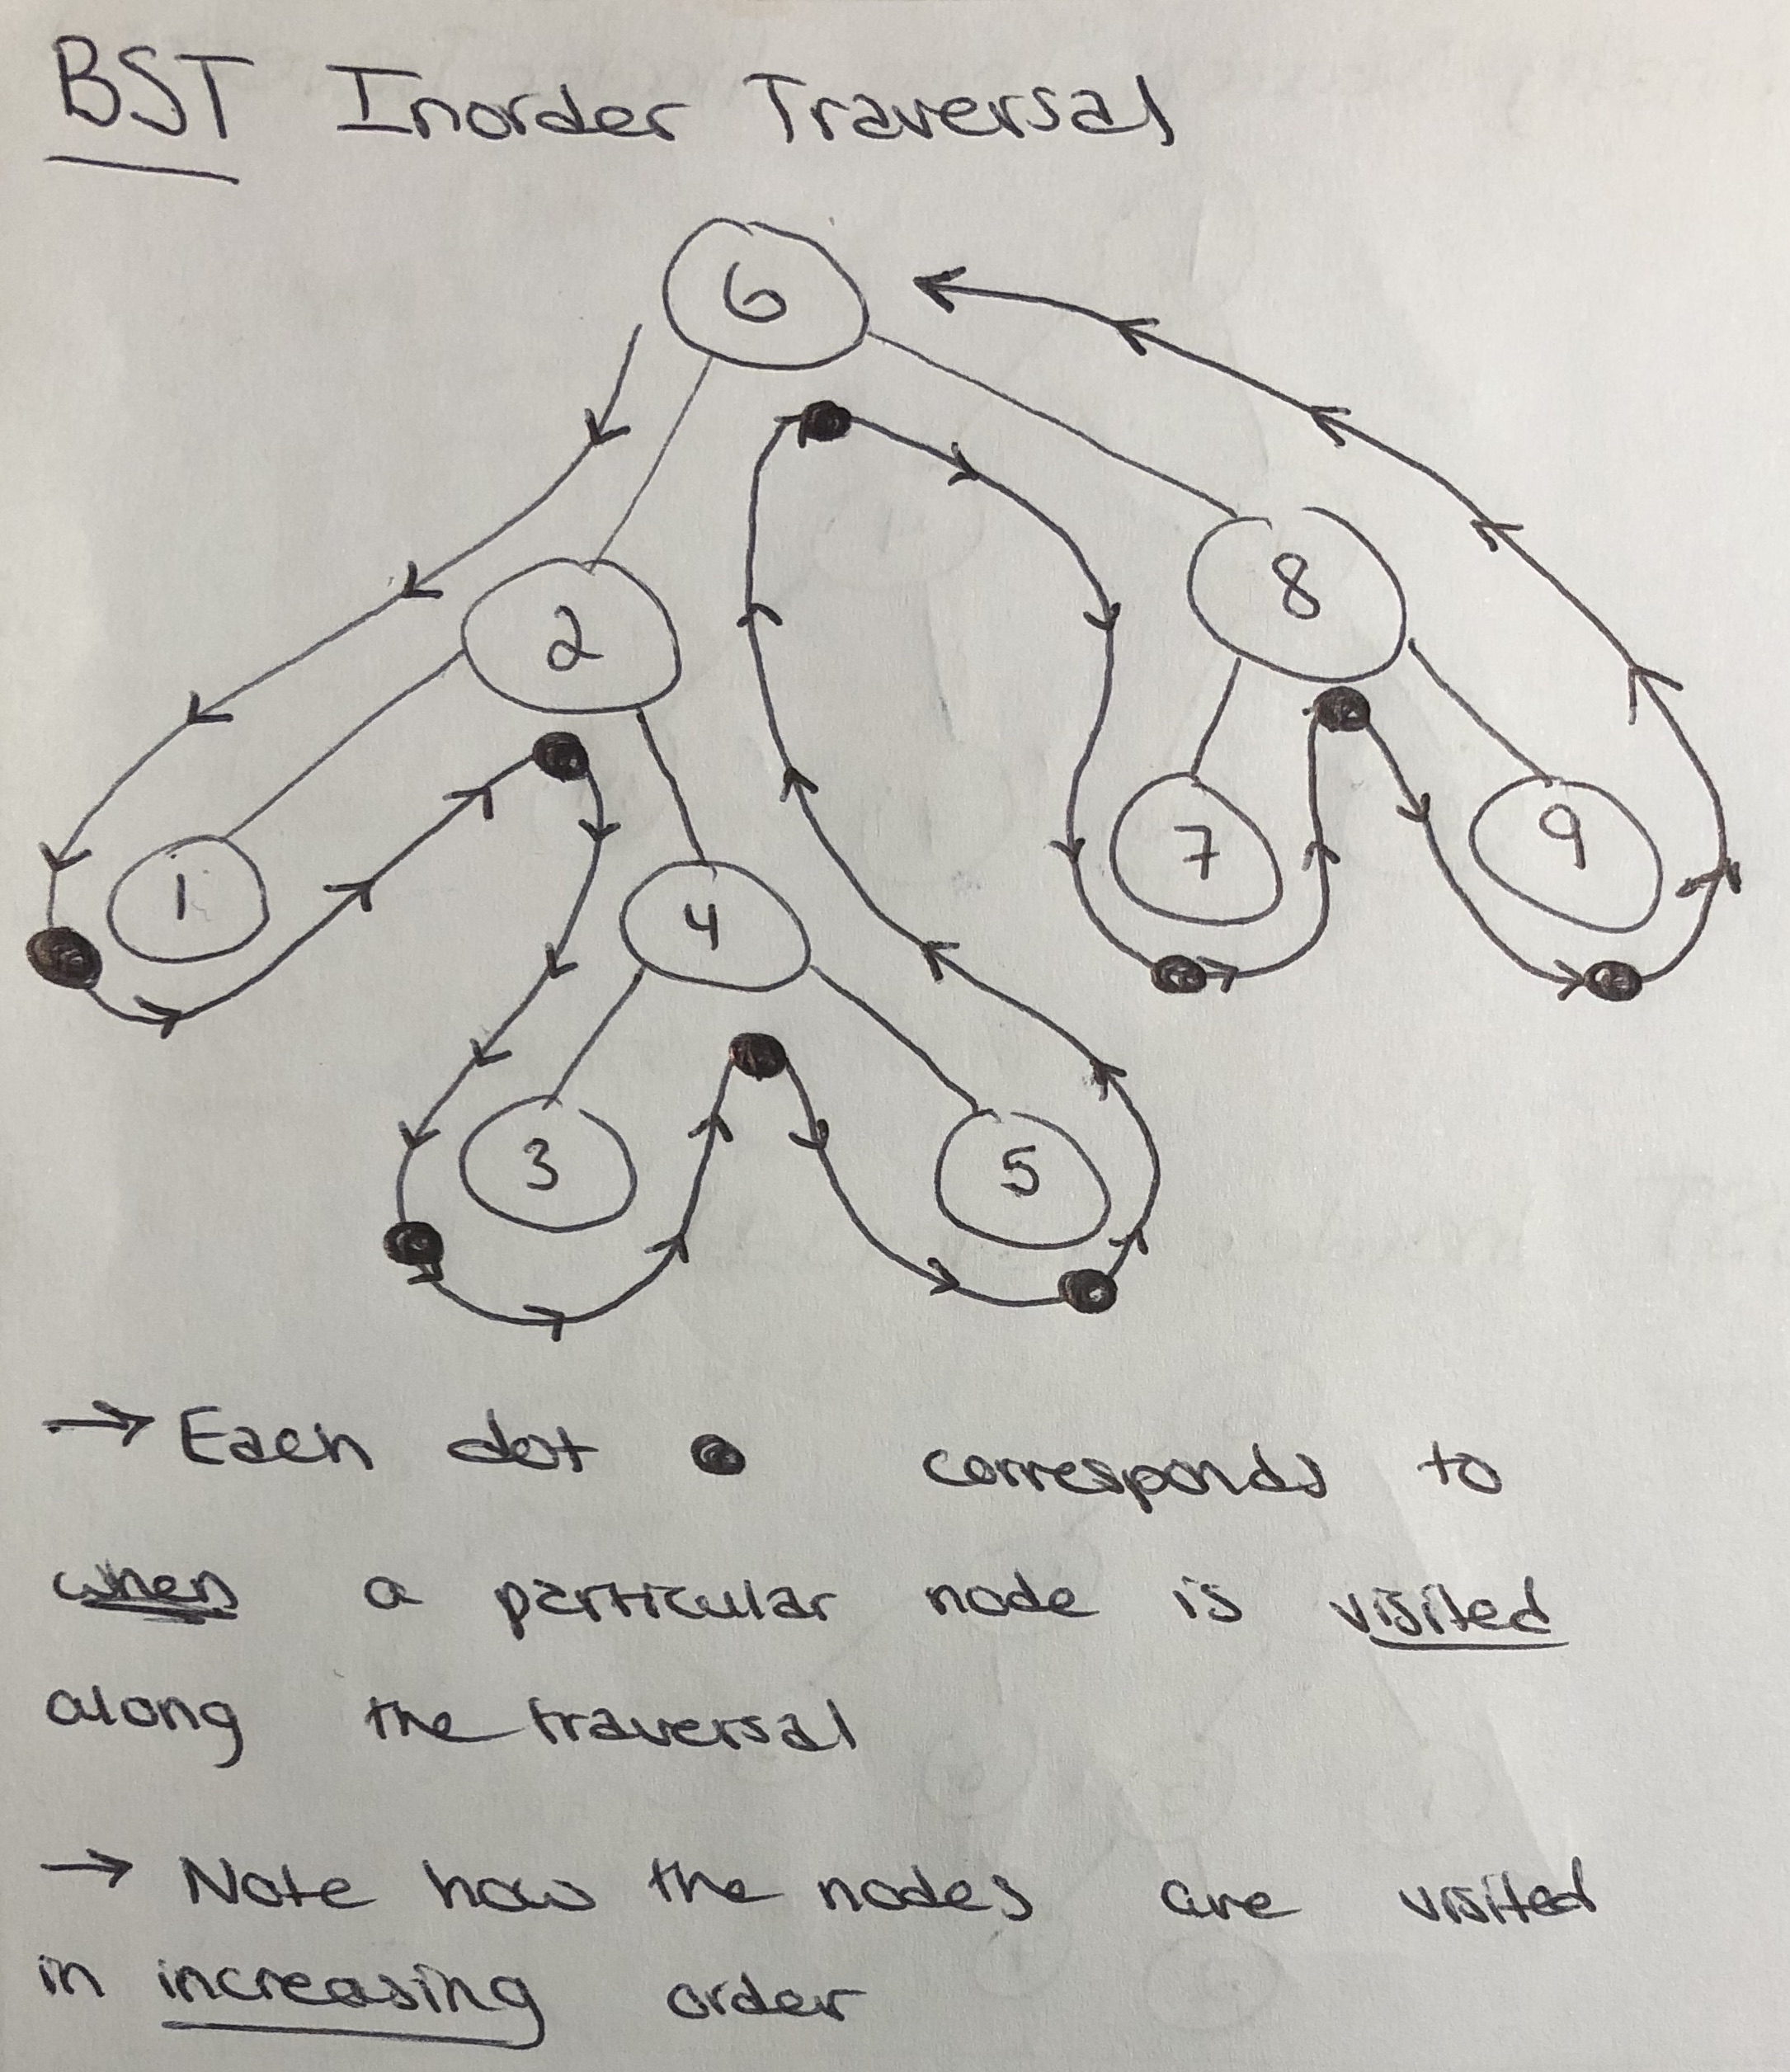 BST Inorder Traversal
6
2
8
1
4
7
9
3
5
→ Each dot ● corresponds to
when a particular node is visited
along the traversal
→ Note how the nodes are visited
in increasing order